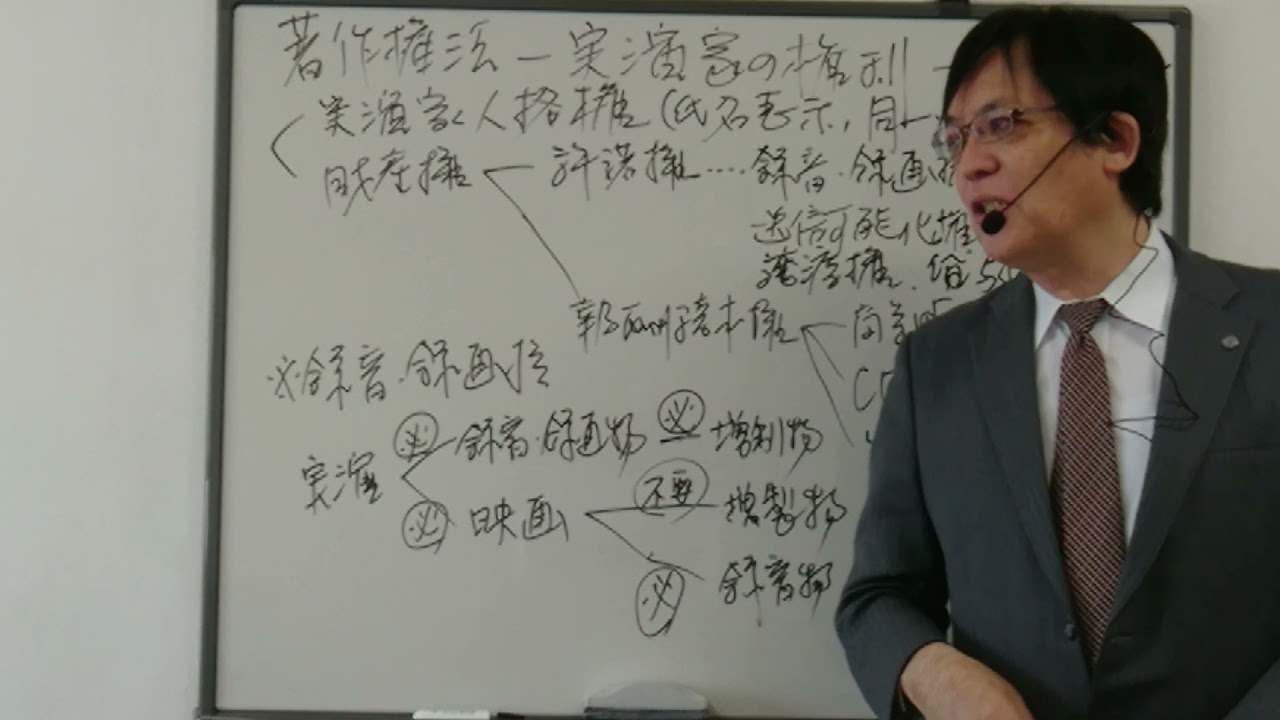 著作権法－実演家の権利－
実演家人格権(氏名表示,同一
財産権 許諾権‥‥録音・録画権
送信可能化権
譲渡権、貸与
報酬請求権 商業
※録音・録画権
必 録音・録画物 必 増製物
実演
必 映画 不要 増製物
必 録音物